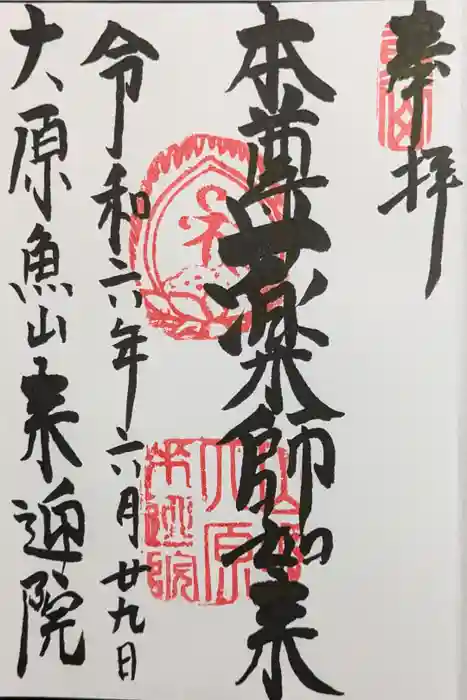 奉拝
本尊薬師如来
令和六年六月廿九日
大原魚山来迎院